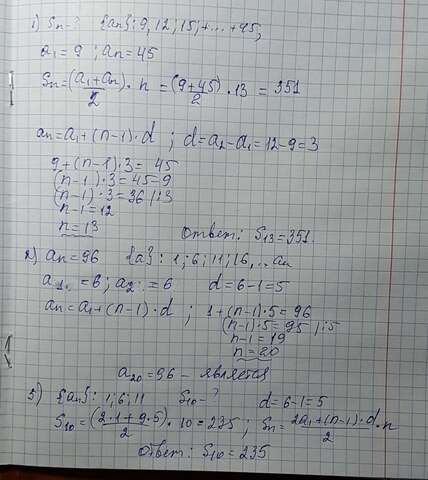 1) Sn-? {an}: 9, 12; 15;+...+45;
a₁=9; an=45
Sn=(a₁+an)/2 · n = (9+45)/2 · 13 = 351
an=a₁+(n-1)·d ; d=a₂-a₁=12-9=3
9+(n-1)·3= 45
(n-1)·3=45=9
(n-1)·3=36 /:3
n-1=12
n=13
Ответ: S₁₃=351.
2) an=96 {a}: 1; 6; 11; 16, .. an
a₁.=6; a₂.=6 d=6-1=5
an=a₁+(n-1)·d ; 1+(n-1)·5=96
(n-1)·5=95 /:5
n-1=19
n=20
a₂₀=96 - является
3) {an}: 1; 6; 11 S₁₀-? d=6-1=5
S₁₀=(2·1+9·5)/2 · 10=235 ; Sn=(2a₁+(n-1)·d)/2 · n
Ответ: S₁₀=235